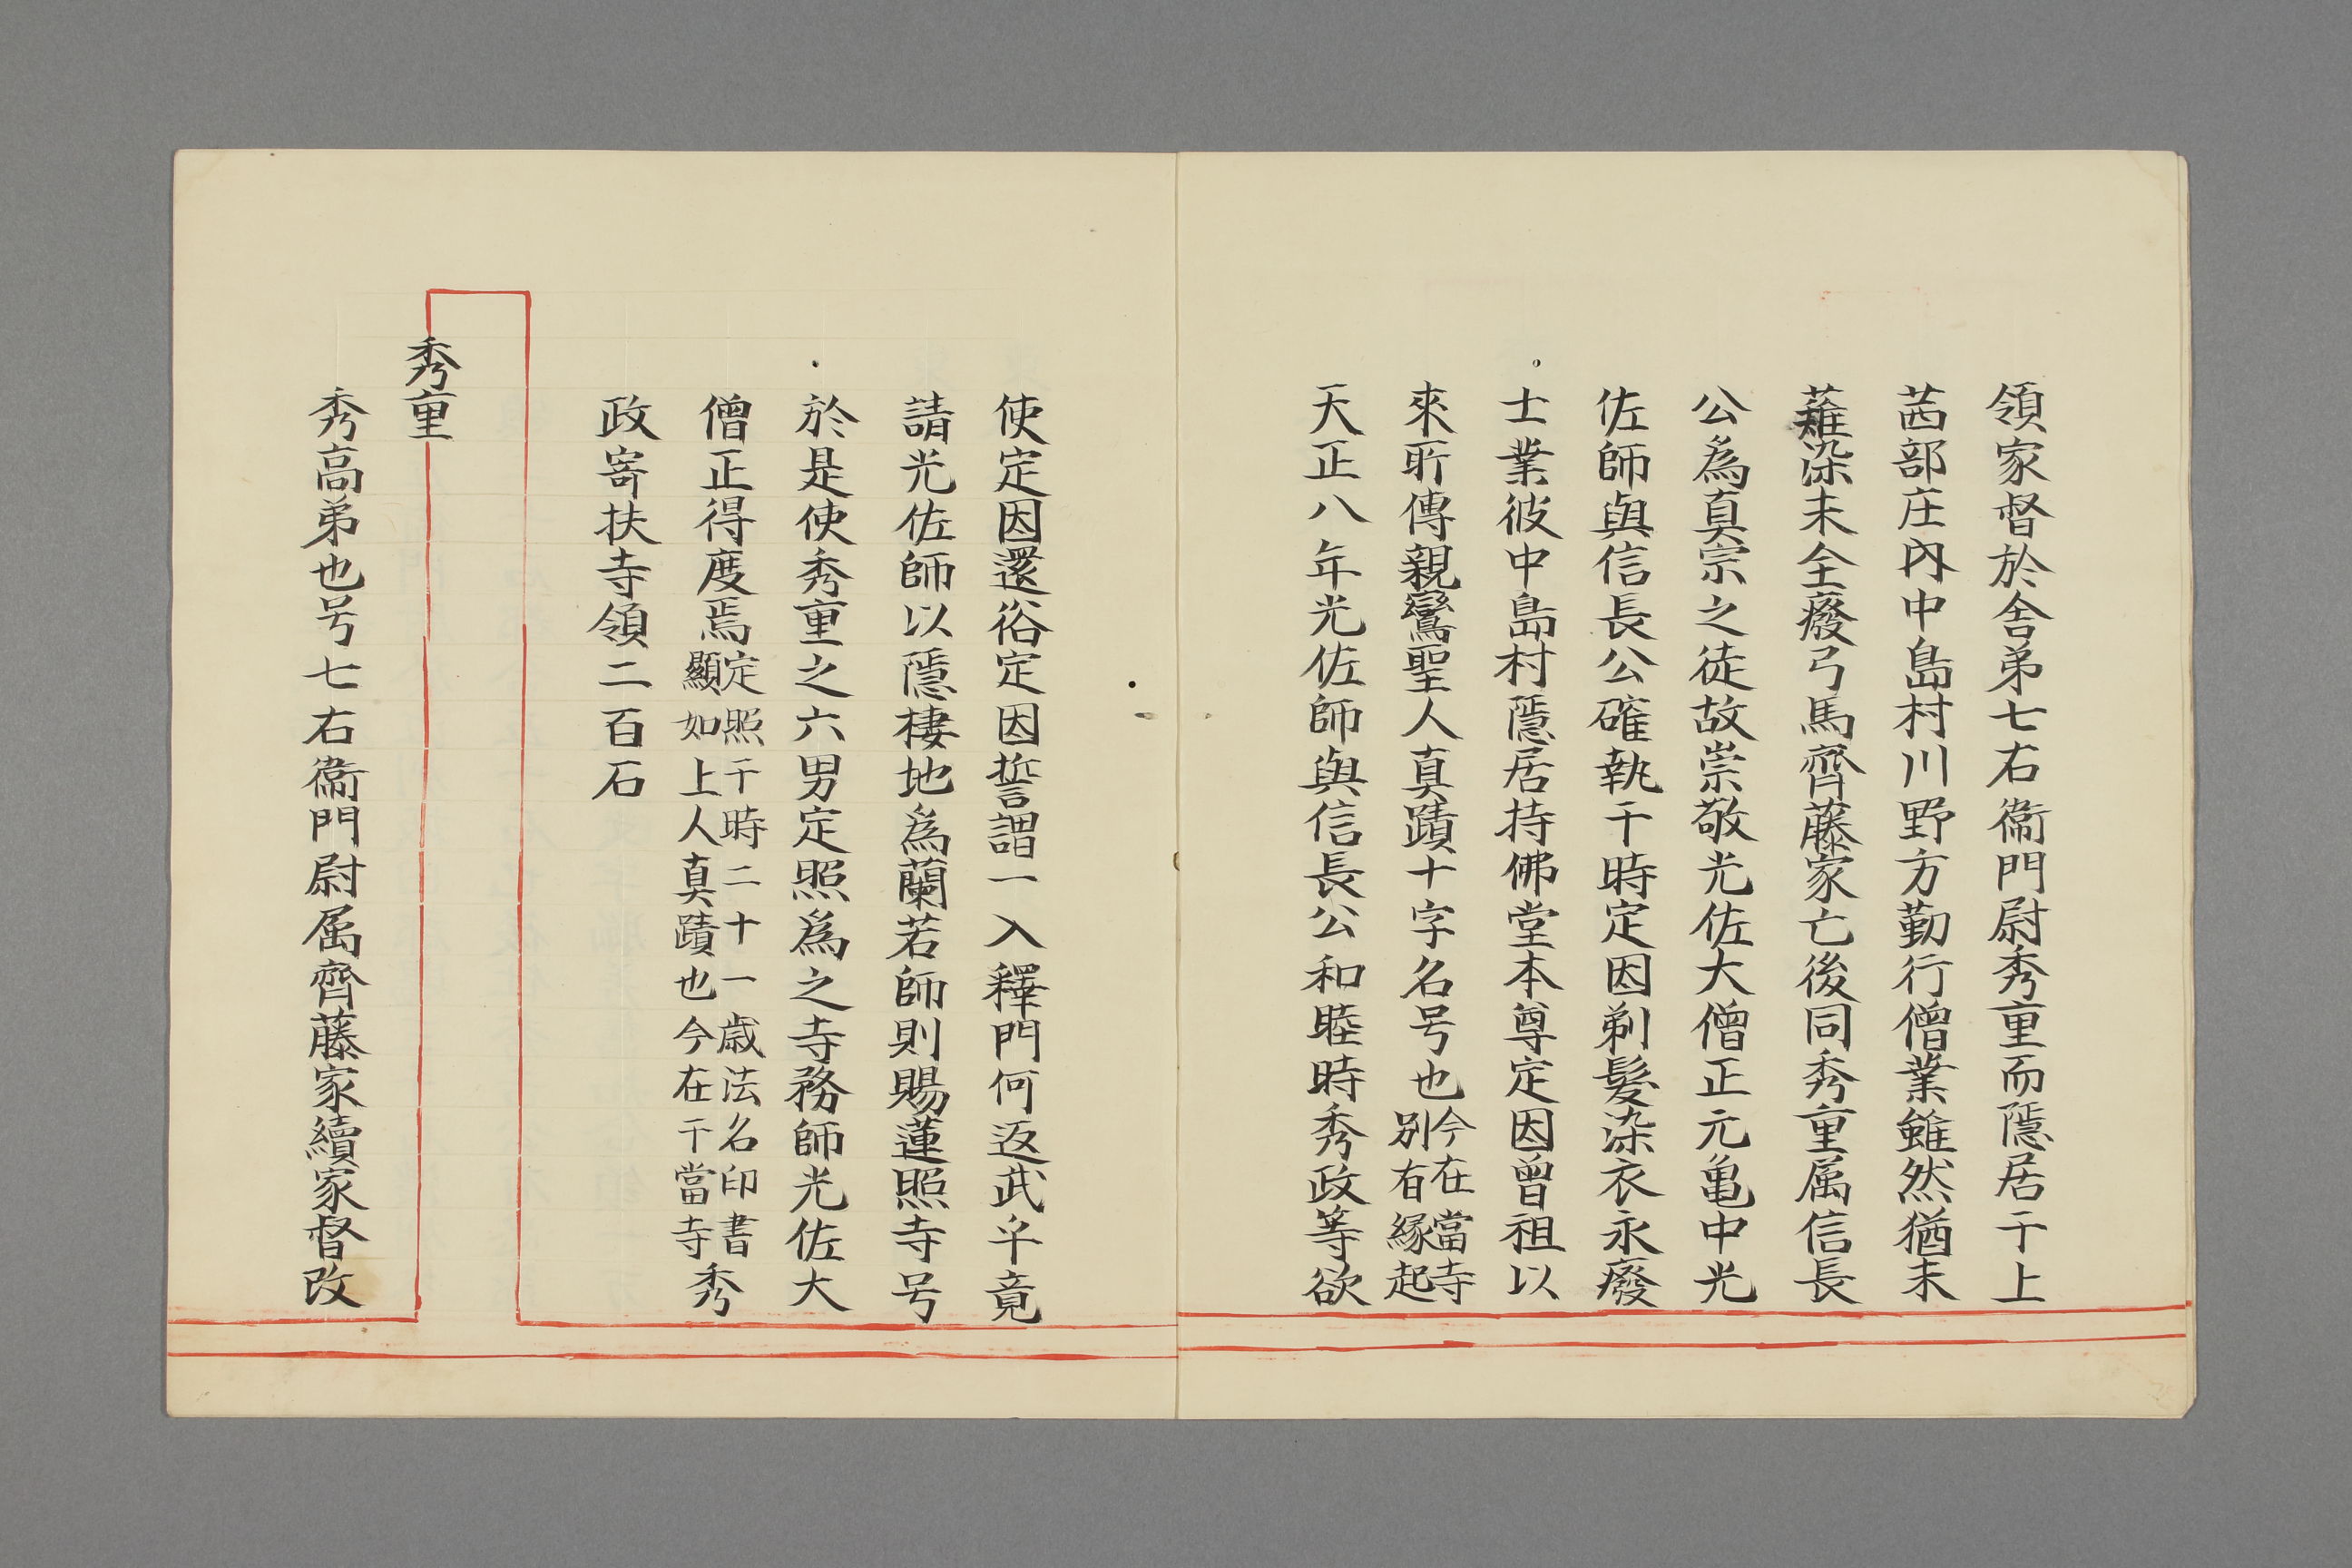 領家督於舎弟七右衞門尉秀重而隱居于上
茜部庄內中島村川野方勤行僧業雖然猶未
薙染未全癈弓馬齊藤家亡後同秀重属信長
公爲真宗之徒故崇敬光佐大僧正元亀中光
佐師與信長公確執于時定因剃髮染衣永癈
士業彼中島村隱居持佛堂本尊定因曽祖以
來所傳親鸞聖人真蹟十字名号也今在當寺別有縁起
天正八年光佐師與信長公和睦時秀政等欲
使定因還俗定因誓謂一入釋門何返武乎竟
請光佐師以隱棲地爲蘭若師則賜蓮照寺号
於是使秀重之六男定照爲之寺務師光佐大
僧正得度焉定照于時二十一歳法名印書顯如上人真蹟也今在于當寺秀
政寄扶寺領二百石
秀重
秀高弟也号七右衞門尉属齊藤家續家督改